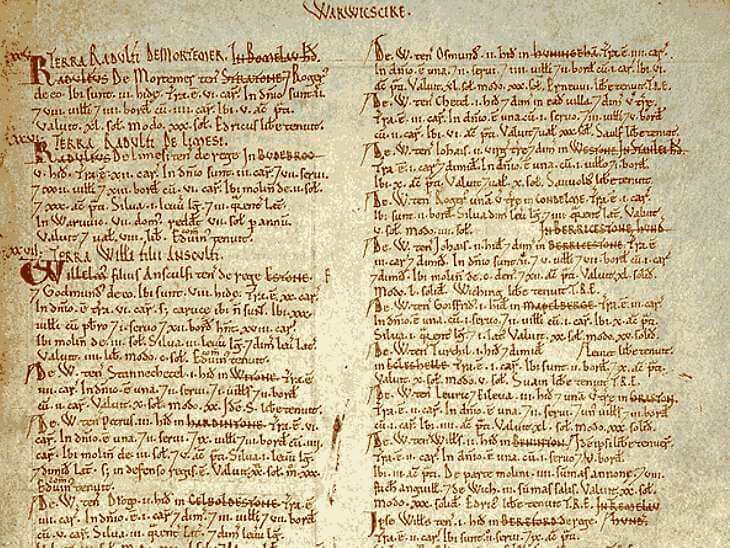 WARWICSCIRE.
XXV. TERRA RADULFI DE MORTEMER. IN Bomelau Hd.
RADULFUS De Mortemer teñ STRATONE 7 Roger
de eo. Ibi sunt. II. hidę. Tra. ē. VI. car. In dñio sunt. II.
7 VIII. uilli 7 IIII. bord cũ. IIII. car. Ibi. V. ac p̃ti.
Valuit. XL. sol. modo. XXX. sol. Edricus libe tenuit.
XXVI. TERRA RADULFI DE LIMESI.
RADULFUS De Limesi ten de rege in BUDEBROC
V. hid. Tra. ē. XII. car. In dñio sunt. III. car. 7 VII. serui.
7 XXII. uilli 7 XII. bord cũ. VI. car. Ibi molin de. II. sol.
7 XXX. ac p̃ti. Silua. I. leuu lg. 7 III. qrent lat.
In Waruuic. VII. dom redd VII. sol p annũ.
Valuit 7 ual. VIII. lib. Eduin tenuit.
XXVII. TERRA WILLI FILII ANSCULFI.
WILLELMUS filius Ansculfi ten de rege ESTONE.
7 Godmund de eo. Ibi sunt. VIII. hidę. Tra. ē. XX. car.
In dñio. ē tra. VI. car. s; carucę ibi ñ sunt. Ibi. XXX.
uilli cũ pbro 7 I. seruo 7 XII. bord hñt. XVIII. car.
Ibi molin de. III. sol. Silua. III. leuu lg. 7 dim leu lat.
Valuit. IIII. lib. modo. C. sol. Eduin tenuit.
De. W. ten Stannechetel. I. hid in WITONE. Tra. ē.
IIII. car. In dñio. ē una. 7 II. serui 7 I. uills 7 II. bord
cũ. II. car. Valuit. X. sol. modo. XX. Idē. S. libe tenuit.
De. W. ten Petrus. III. hid in HARDINTONE. Tra. ē. VI.
car. In dñio. ē una. 7 II. serui. 7 IX. uilli 7 bord cũ. III.
car. Ibi molin de. III. sol. 7 V. ac p̃ti. Silua. I. leuu lg.
7 dimid lat. s; in defenso regis. ē. Valuit. XX. sol. m. XXX.
Eduin tenuit.
De. W. ten Drogo. II. hid in CELBOLDESTONE. Tra. ē
IIII. car. In dñio. ē. I. car 7 dim. 7 III. uilli 7 II. bord
cũ. V. car. Silua. III. qrent lat. 7 dim leuu lg.
De. W. ten Osmund. II. hid in HUNINGEHĀ. Tra. ē. IIII. car.
In dñio. ē una. 7 II. serui. 7 III. uilli 7 II. bord cũ. I. car. Ibi. VI.
ac p̃ti. Valuit. XL. sol. modo. XX. sol. Ernuin libe tenuit. T.R.E.
De. W. ten Chetel. I. hid 7 dim in ead uilla 7 dim v træ.
Tra. ē. II. car. In dñio. ē una cũ. I. seruo. 7 III. uilli 7 bord
cũ. II. car. Ibi. VI. ac p̃ti. Valuit 7 ual. XXX. sol. Saulf libe tenuit.
De. W. ten Iohais. II. virg træ 7 dim in WESTONE. IN Stanlei Hd.
Tra. ē. I. car 7 dimid. In dñio. ē una. cũ. I. uillo 7 I. bord.
Ibi. IX. ac p̃ti. Valuit 7 ual. X. sol. Sauuold libe tenuit.
De. W. ten Roger. una. v træ in CONDELME. Tra. ē. I. car.
Ibi sunt. II. bord. Silua dim leuu lg. 7 III. qrent lat. Valuit
V. sol. modo. III. sol. IN BERRICESTONE HUND.
De. W. ten Iohais. I. hid 7 dim in BERRICESTONE. Tra. ē
IIII. car 7 dimid. In dñio sunt. II. 7 V. uilli 7 VII. bord cũ. I. car.
7 dimid. Ibi molin de. C. den. 7 XII. ac p̃ti. Valuit. XL. solid.
Modo. L. solid. Wiching libe tenuit. T.R.E.
De. W. ten Goisfrid. I. hid in MAPELBERGE. Tra. ē. III. car.
In dñio. ē una. cũ. I. seruo. 7 II. uilli cũ. I. car. Ibi. X. ac p̃ti.
Silua. I. qrent lg. 7 I. lat. Valuit. XXX. sol. modo. XX. solid.
De. W. ten Turchil. I. hid 7 dimid Leuuit libe tenuit.
in ECLESHELLE. Tra. ē. II. car. Ibi sunt. II. bord. 7 X. ac p̃ti.
Valuit. X. sol. modo. V. sol. Suain libe tenuit T.R.E.
De. W. ten Leuric 7 Eileua. III. hid 7 una v træ in GRASTONE.
Tra. ē. II. car. In dñio. ē una. 7 II. serui 7 un uills 7 II. bord
cũ. I. car. Valuit. XL. sol. modo. XX. solid.
De. W. ten Wills. II. hid in BENINTONE. Idē ipsi libe tenuer.
Tra. ē. II. car. In dñio. ē una. cũ. I. seruo 7 V. bord.
Ibi. III. ac p̃ti. De parte molini. IIII. sumas annone. 7 VIII.
stich anguill. 7 de Wich. III. sumas salis. Valuit. XX. sol.
modo. XXX. solid. Edric libe tenuit T.R.E. IN REMELAU
IPSE Wills ten. I. hid in BEREFORD de rege. HUND.
Tra. ē. II. car. Ibi sunt. II. serui 7 II. bord 7 VI. ac p̃ti.